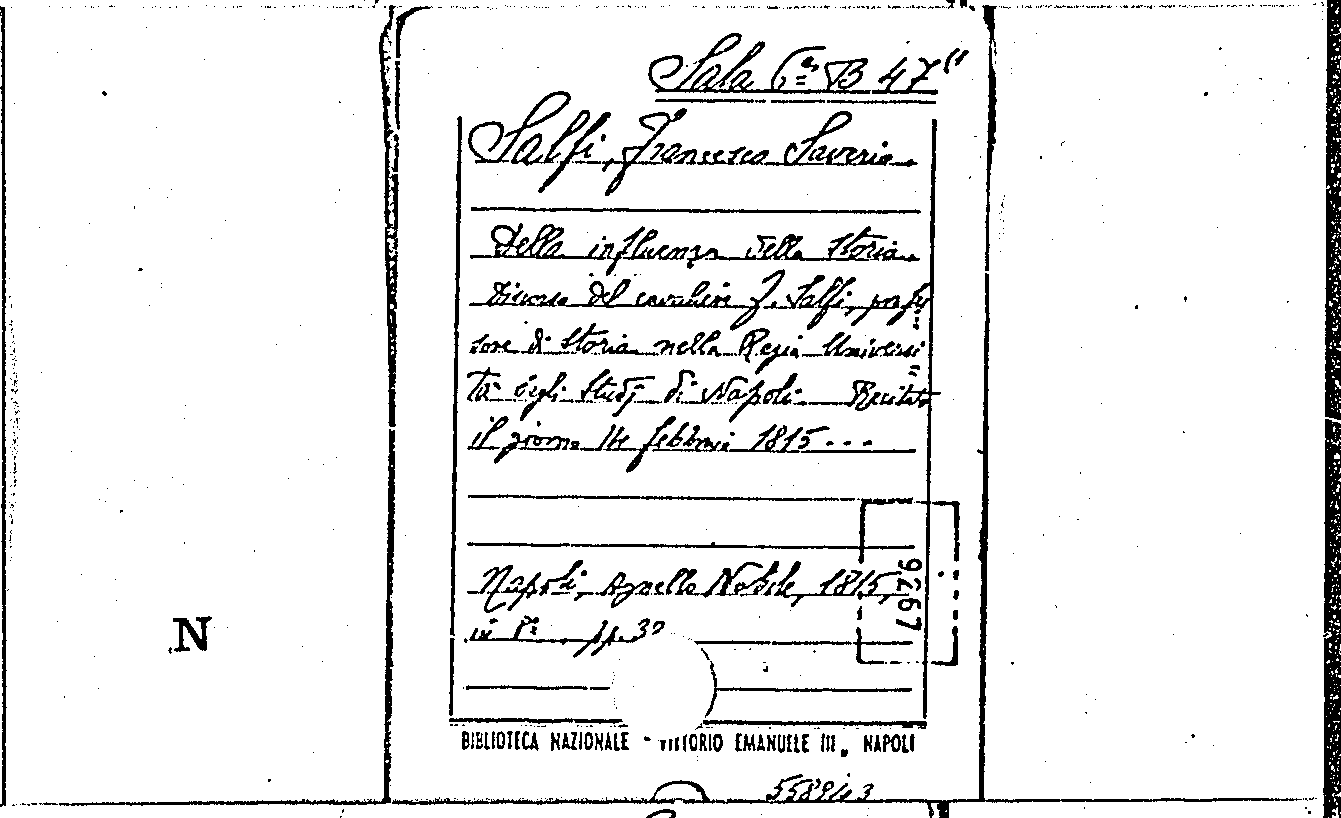 Sala 6ª B 47
Salfi, Francesco Saverio.
Della influenza della Storia.
Discorso del cavaliere F. Salfi, profes
sore di Storia nella Regia Universi
tà degli Studj di Napoli. Recitato
il giorno 14 febbrai 1815...
Napoli, Agnello Nobile, 1815,
in 8º pp. 32
9767
N
BIBLIOTECA NAZIONALE - VITTORIO EMANUELE III, NAPOLI